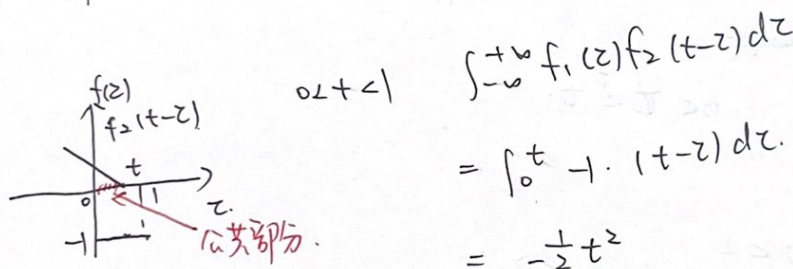 f(τ)
f₂(t-τ)
t
0
1
τ
-1
公共部分.
0<t<1
∫₋∞⁺∞ f₁(τ)f₂(t-τ)dτ
= ∫₀ᵗ -1·(t-τ)dτ.
= -½t²